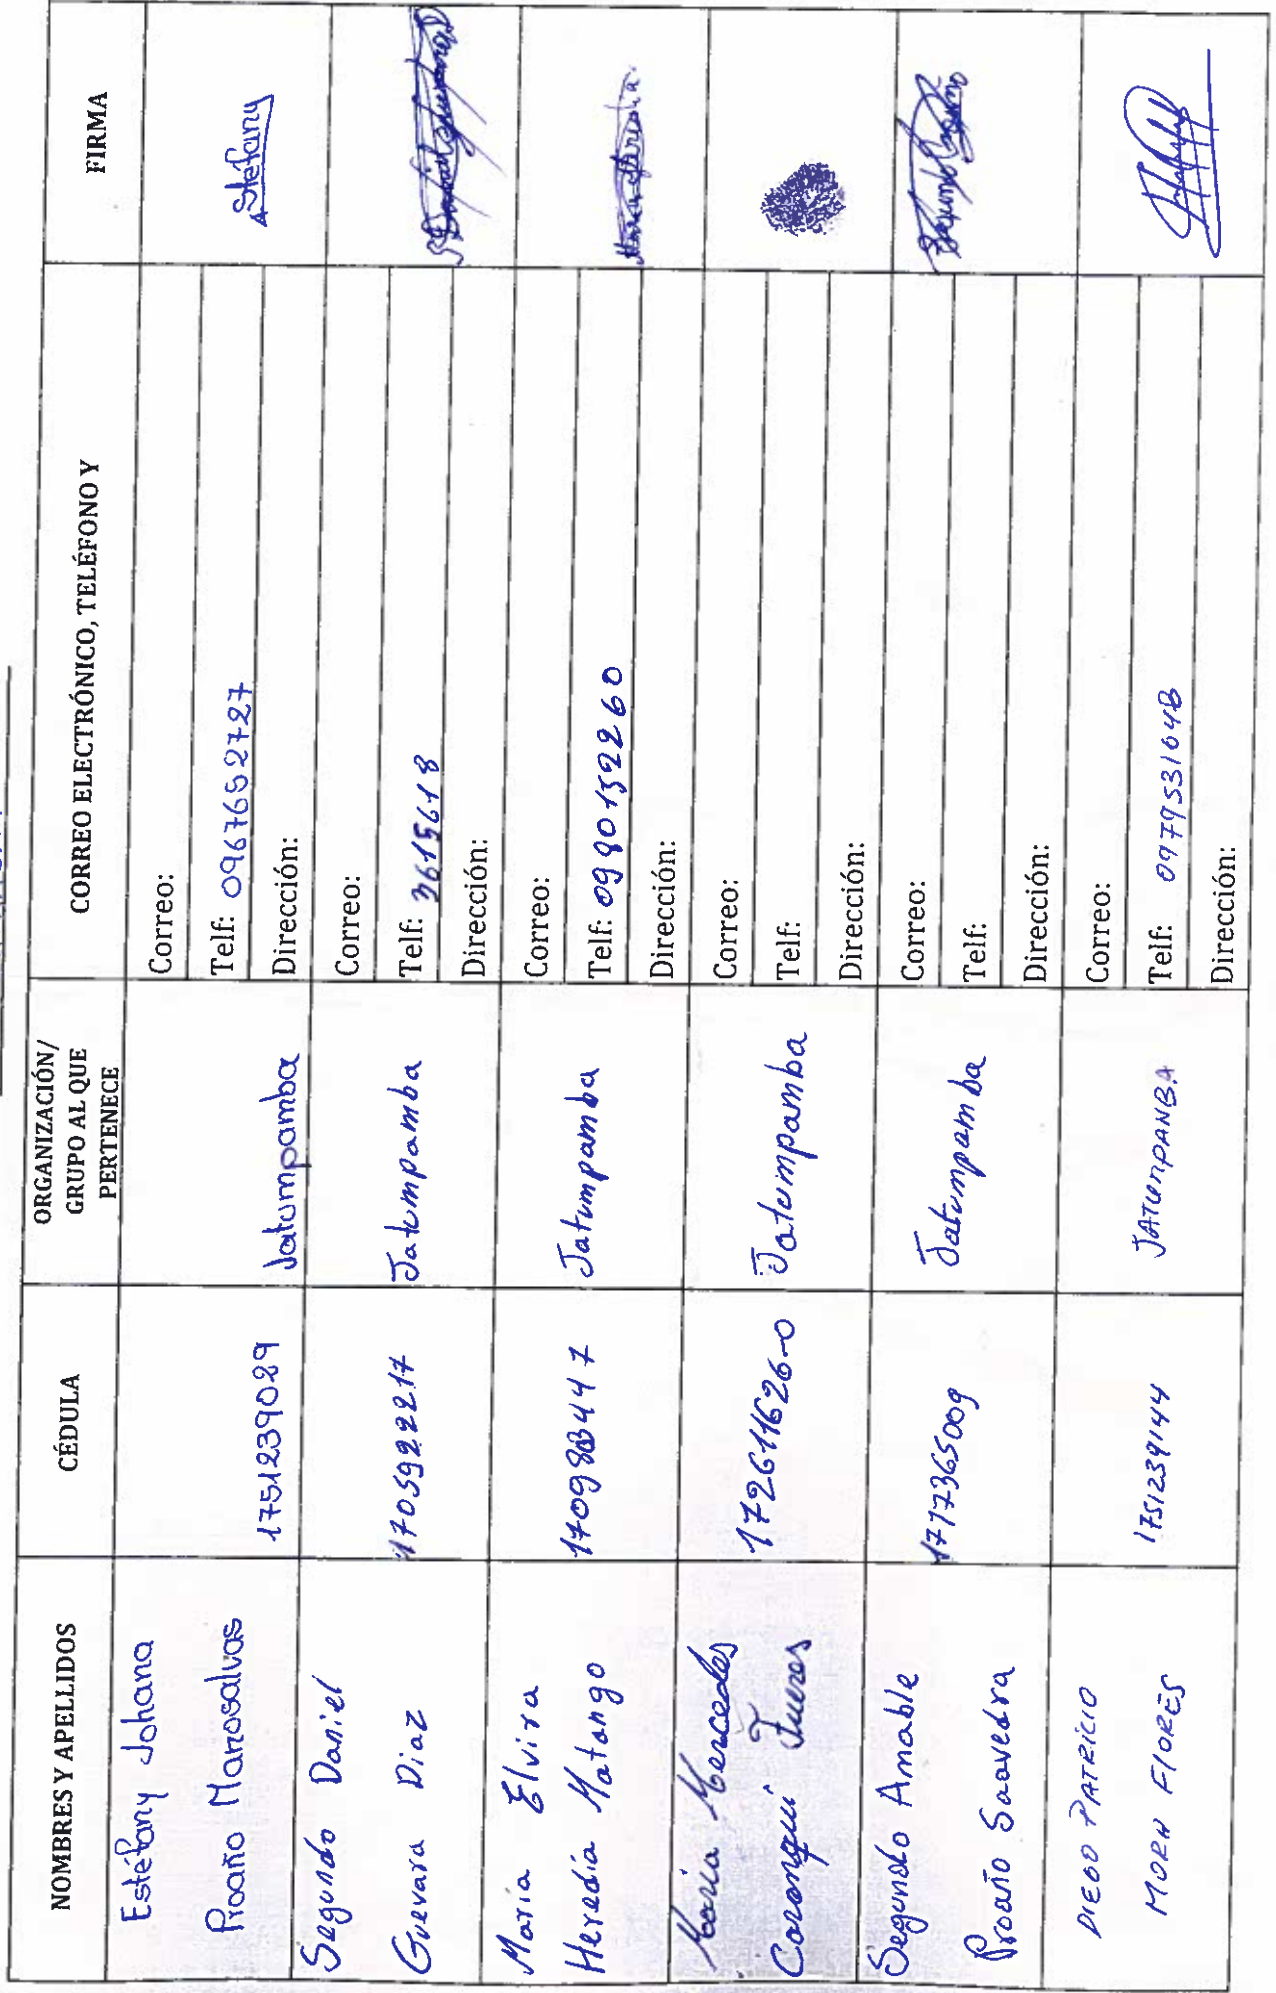 NOMBRES Y APELLIDOS
CÉDULA
ORGANIZACIÓN/
GRUPO AL QUE
PERTENECE
CORREO ELECTRÓNICO, TELÉFONO Y
FIRMA
Estéfany Johana
Proaño Manosalvas
1751239029
Jatumpamba
Correo:
Telf: 0967652727
Dirección:
Stéfany
Segundo Daniel
Guevara Diaz
1705922217
Jatumpamba
Correo:
Telf: 3615618
Dirección:
María Elvira
Heredia Matango
Jatumpamba
Correo:
Telf: 0990152260
Dirección:
María Heredia
Maria Mercedes
Coronqui Tueres
172611626-0
Jatumpamba
Correo:
Telf:
Dirección:
Segundo Amable
Proaño Saavedra
1717365009
Jatumpamba
Correo:
Telf:
Dirección:
DIEGO PATRICIO
MORA FLORES
1751239144
JATUMPAMBA
Correo:
Telf: 0979531648
Dirección: